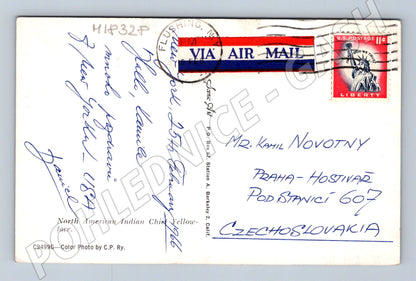 41832P
FLUSHING, N.Y.
VIA AIR MAIL
U.S. POSTAGE 11¢
LIBERTY
New York 25th February 1966
Hello, Kamile
mnoho pozdravů
z New Yorku - USA
Mr. Kamil NOVOTNY
PRAHA - HOSTIVAŘ
POD STANICÍ 607
CZECHOSLOVAKIA
P.O. Box 57, Station A, Berkeley 2, Calif.
North American Indian Chief Yellow-
face.
C24996—Color Photo by C.P. Ry.
POHLEDNICE - GALISH